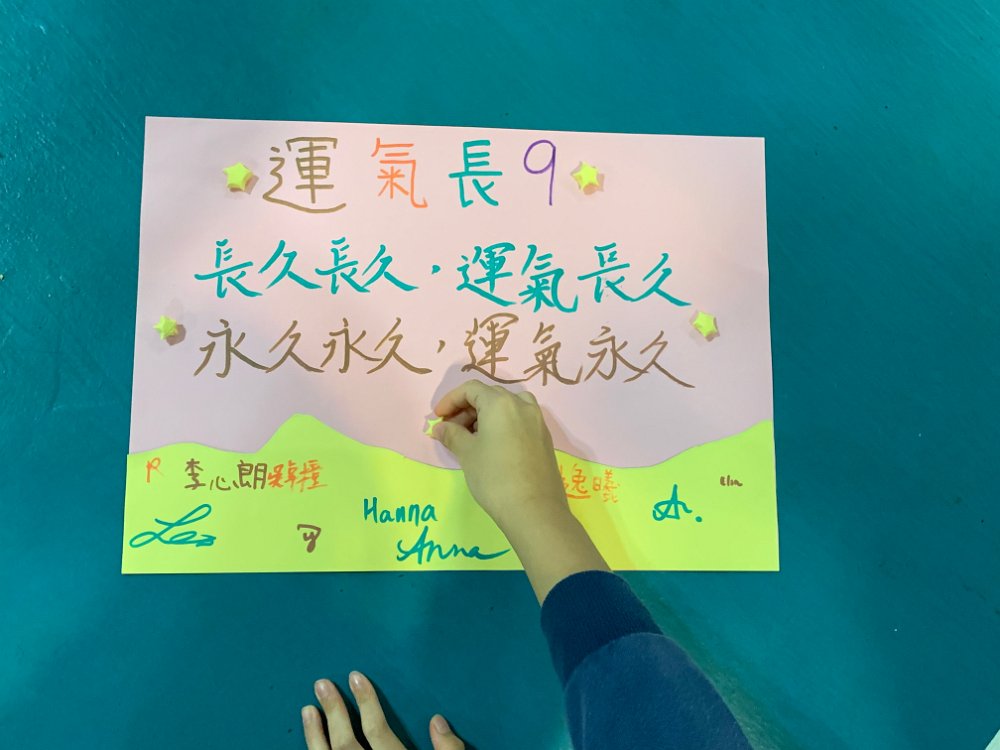 運氣長9
長久長久,運氣長久
永久永久,運氣永久
李心朗 逸曦
Hanna
Anna